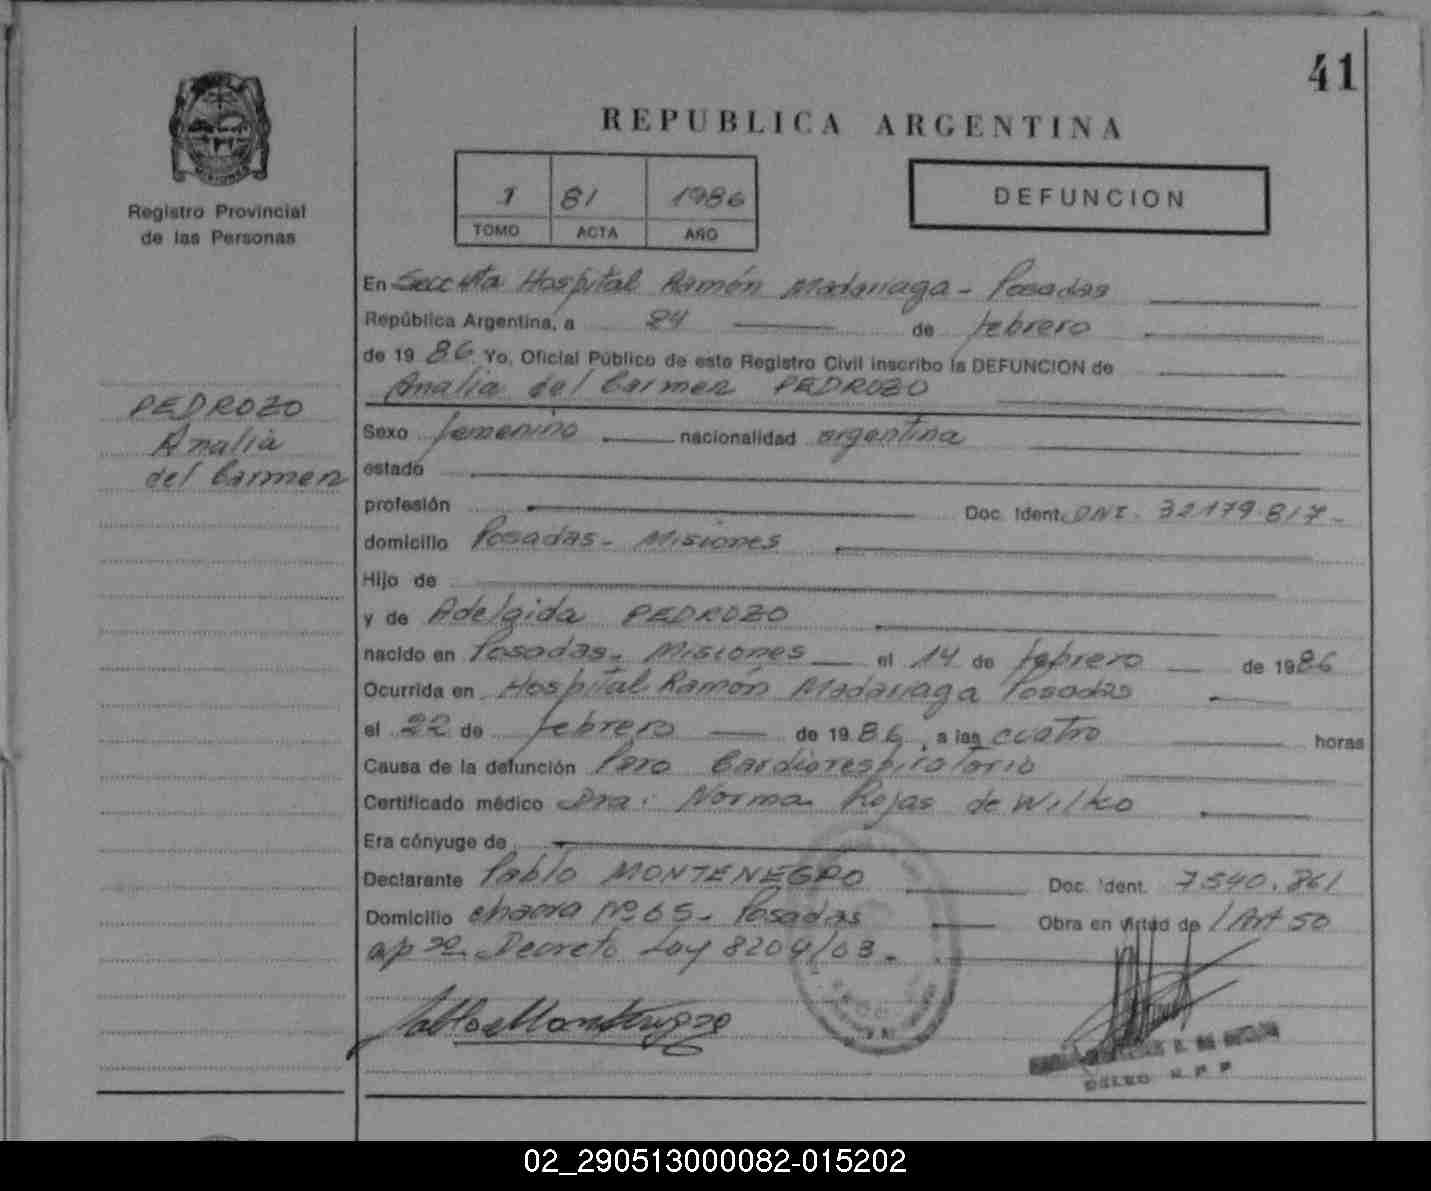 41
REPUBLICA ARGENTINA
1 81 1986
TOMO ACTA AÑO
DEFUNCION
Registro Provincial
de las Personas
PEDROZO
Analia
del Carmen
En Secc 4ta Hospital Ramón Madariaga - Posadas
República Argentina, a 24 de febrero
de 1986 Yo, Oficial Público de este Registro Civil inscribo la DEFUNCION de
Analia del Carmen PEDROZO
Sexo femenino nacionalidad argentina
estado
profesión Doc. Ident. DNI. 32179.817-
domicilio Posadas - Misiones
Hijo de
y de Adelaida PEDROZO
nacido en Posadas - Misiones el 14 de febrero de 1986
Ocurrida en Hospital Ramón Madariaga Posadas
el 22 de febrero de 1986, a las cuatro horas
Causa de la defunción Paro Cardiorespiratorio
Certificado médico Dra: Norma Rojas de Wilko
Era cónyuge de
Declarante Pablo MONTENEGRO Doc. Ident. 7.540.861
Domicilio chacra Nº 65 - Posadas Obra en virtud de l Art 50
ap 2º Decreto Ley 8204/63.-
02_290513000082-015202